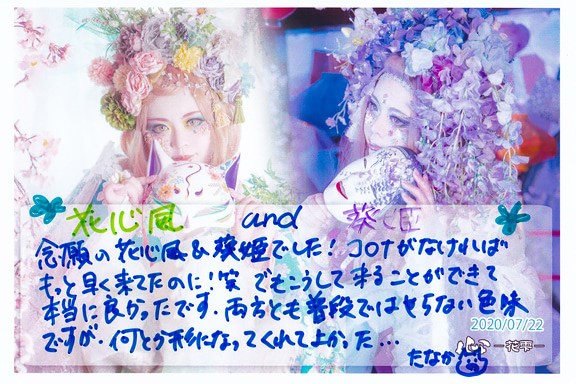 花心風 and 葵姫
念願の花心風&葵姫でした!コロナがなければ
もっと早く来てたのに!笑 でもこうして来ることができて
本当に良かったです。両方とも普段ではやらない色味
ですが、何とか形になってくれて上かった…
2020/07/22
たなか
一花雫一